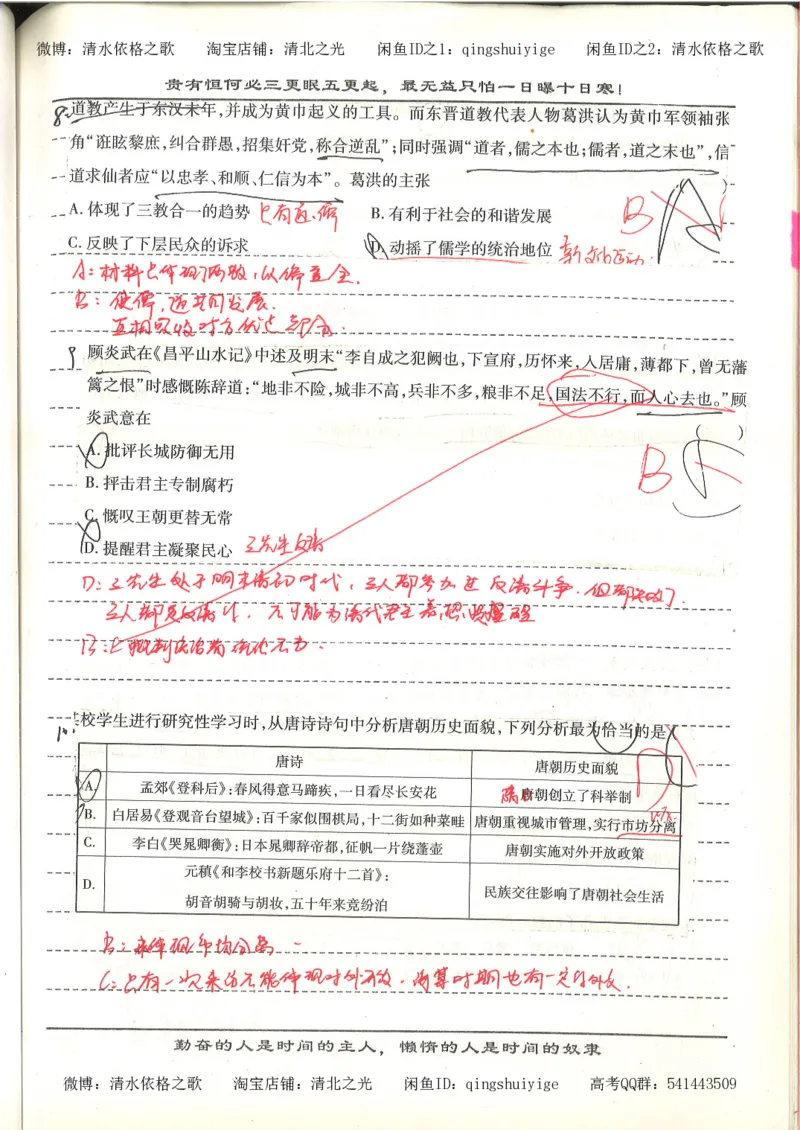 微博：清水依格之歌 淘宝店铺：清北之光 闲鱼ID之1：qingshuiyige 闲鱼ID之2：清水依格之歌
贵有恒何必三更眠五更起，最无益只怕一日曝十日寒！
8. 道教产生于东汉末年,并成为黄巾起义的工具。而东晋道教代表人物葛洪认为黄巾军领袖张
角“诳眩黎庶,纠合群愚,招集奸党,称合逆乱”;同时强调“道者,儒之本也;儒者,道之末也”,信
道求仙者应“以忠孝、和顺、仁信为本”。葛洪的主张
A. 体现了三教合一的趋势 只有道、儒 B. 有利于社会的和谐发展 B
C. 反映了下层民众的诉求 D. 动摇了儒学的统治地位 新文化运动.
A:材料只体现了两教,以偏盖全.
B:使儒,道共同发展.
9 顾炎武在《昌平山水记》中述及明末“李自成之犯阙也,下宣府,历怀来,入居庸,薄都下,曾无藩
篱之恨”时感慨陈辞道:“地非不险,城非不高,兵非不多,粮非不足,国法不行,而人心去也。”顾
炎武意在 ( )
A. 批评长城防御无用
B. 抨击君主专制腐朽 B
C. 慨叹王朝更替无常
D. 提醒君主凝聚民心 三先生反清
D:三先生处于明末清初时代,三人都参加过反清斗争.但都失败了.
三人都是反清
10. 某校学生进行研究性学习时,从唐诗诗句中分析唐朝历史面貌,下列分析最为恰当的是(
唐诗 唐朝历史面貌
A. 孟郊《登科后》:春风得意马蹄疾,一日看尽长安花 隋 唐朝创立了科举制
B. 白居易《登观音台望城》:百千家似围棋局,十二街如种菜畦 唐朝重视城市管理,实行市坊分离
C. 李白《哭晁卿衡》:日本晁卿辞帝都,征帆一片绕蓬壶 唐朝实施对外开放政策
D. 元稹《和李校书新题乐府十二首》:
胡音胡骑与胡妆,五十年来竞纷泊 民族交往影响了唐朝社会生活
B:未体现市坊分离
C:只有一次来访不能体现对外开放.
勤奋的人是时间的主人，懒惰的人是时间的奴隶
微博：清水依格之歌 淘宝店铺：清北之光 闲鱼ID：qingshuiyige 高考QQ群：541443509